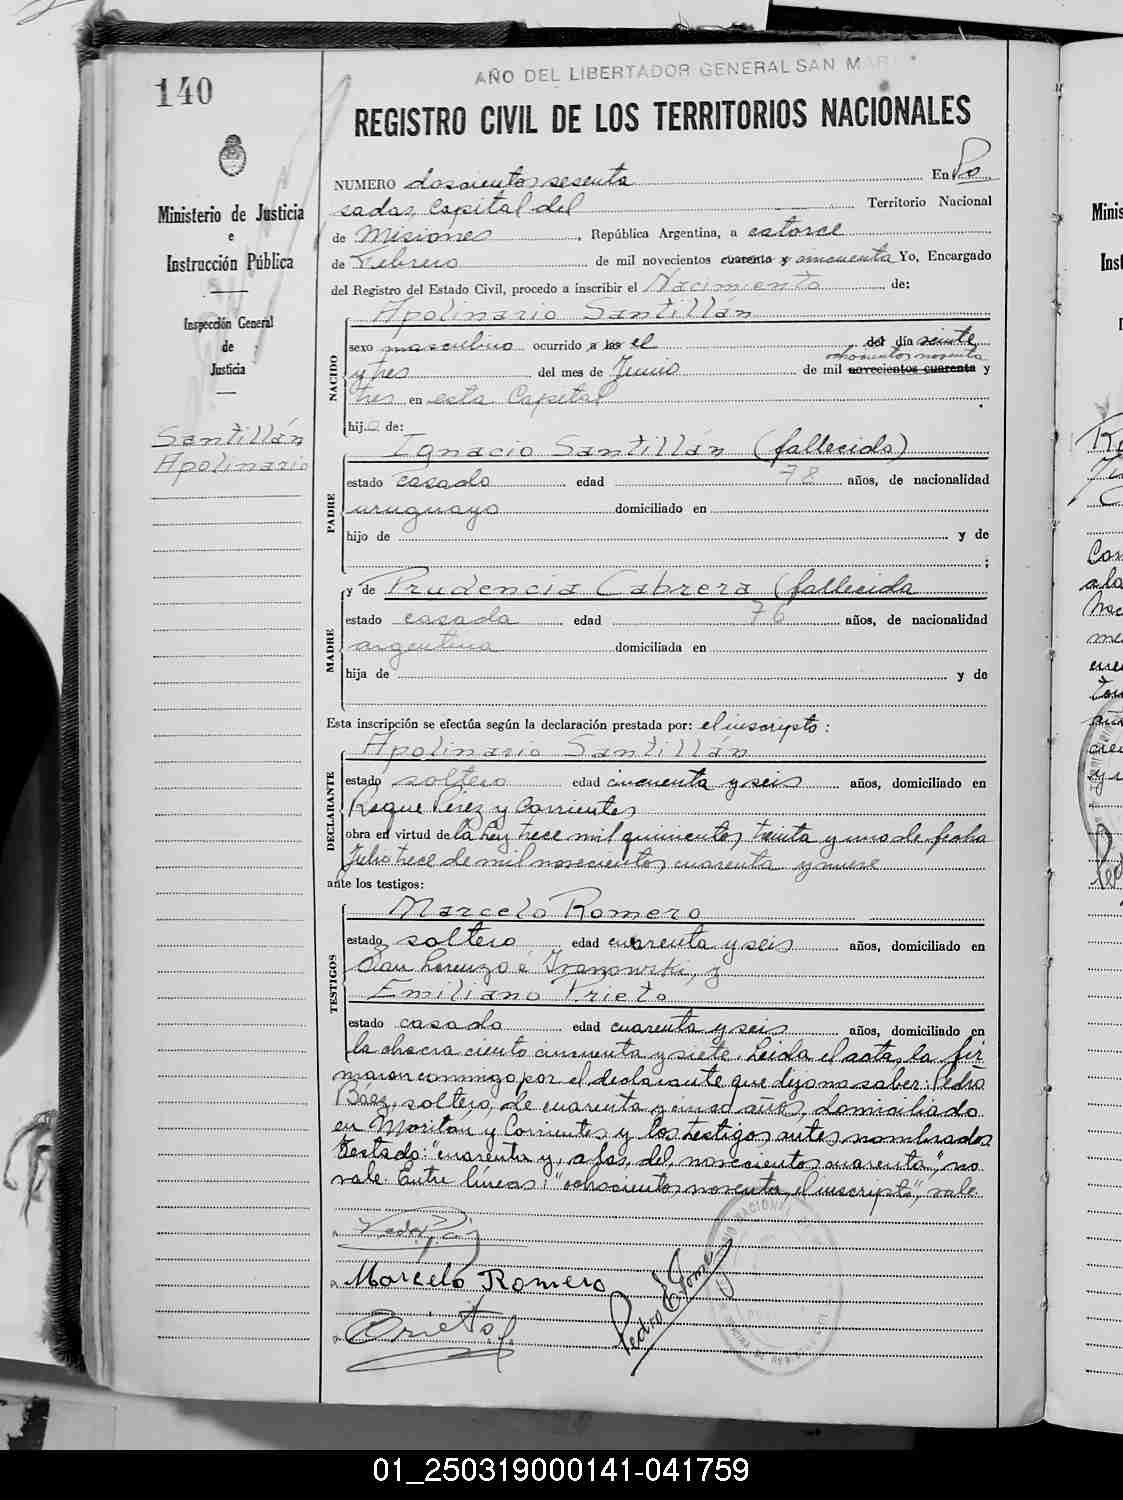 140
AÑO DEL LIBERTADOR GENERAL SAN MAR
REGISTRO CIVIL DE LOS TERRITORIOS NACIONALES
Ministerio de Justicia
e
Instrucción Pública
Inspección General
de
Justicia
Santillán
Apolinario
NUMERO doscientos sesenta En Po
sadas, Capital del Territorio Nacional
de Misiones, República Argentina, a catorce
de Febrero de mil novecientos cuarenta y cincuenta Yo, Encargado
del Registro del Estado Civil, procedo a inscribir el Nacimiento de:
Apolinario Santillán
NACIDO
sexo masculino ocurrido a las el del día veinte
ochocientos noventa
y tres del mes de Junio de mil novecientos cuarenta y
tres en esta Capital
hijo de:
Ignacio Santillán (fallecido)
PADRE
estado casado edad 78 años, de nacionalidad
uruguayo domiciliado en
hijo de y de
;
y de Prudencia Cabrera (fallecida
MADRE
estado casada edad 76 años, de nacionalidad
argentina domiciliada en
hija de y de
Esta inscripción se efectúa según la declaración prestada por: el inscripto:
Apolinario Santillán
DECLARANTE
estado soltero edad cincuenta y seis años, domiciliado en
Roque Perez y Corrientes
obra en virtud de la Ley trece mil quinientos treinta y uno de fecha
Julio trece de mil novecientos cuarenta y nueve
ante los testigos:
Marcelo Romero
TESTIGOS
estado soltero edad cuarenta y seis años, domiciliado en
San Lorenzo é Iranowski, y
Emiliano Prieto
estado casado edad cuarenta y seis años, domiciliado en
la chacra ciento cincuenta y siete. Leida el acta, la fir
maron conmigo por el declarante que dijo no saber: Pedro
Báez, soltero, de cuarenta y cinco años, domiciliado
en Moritan y Corrientes y los testigos antes nombrados
Testado: "cuarenta y, a las, del, novecientos cuarenta," no
vale. Entre líneas: "ochocientos noventa, el inscripto", vale.
Marcelo Romero
Prieto
Pedro E. Gomez
01_250319000141-041759